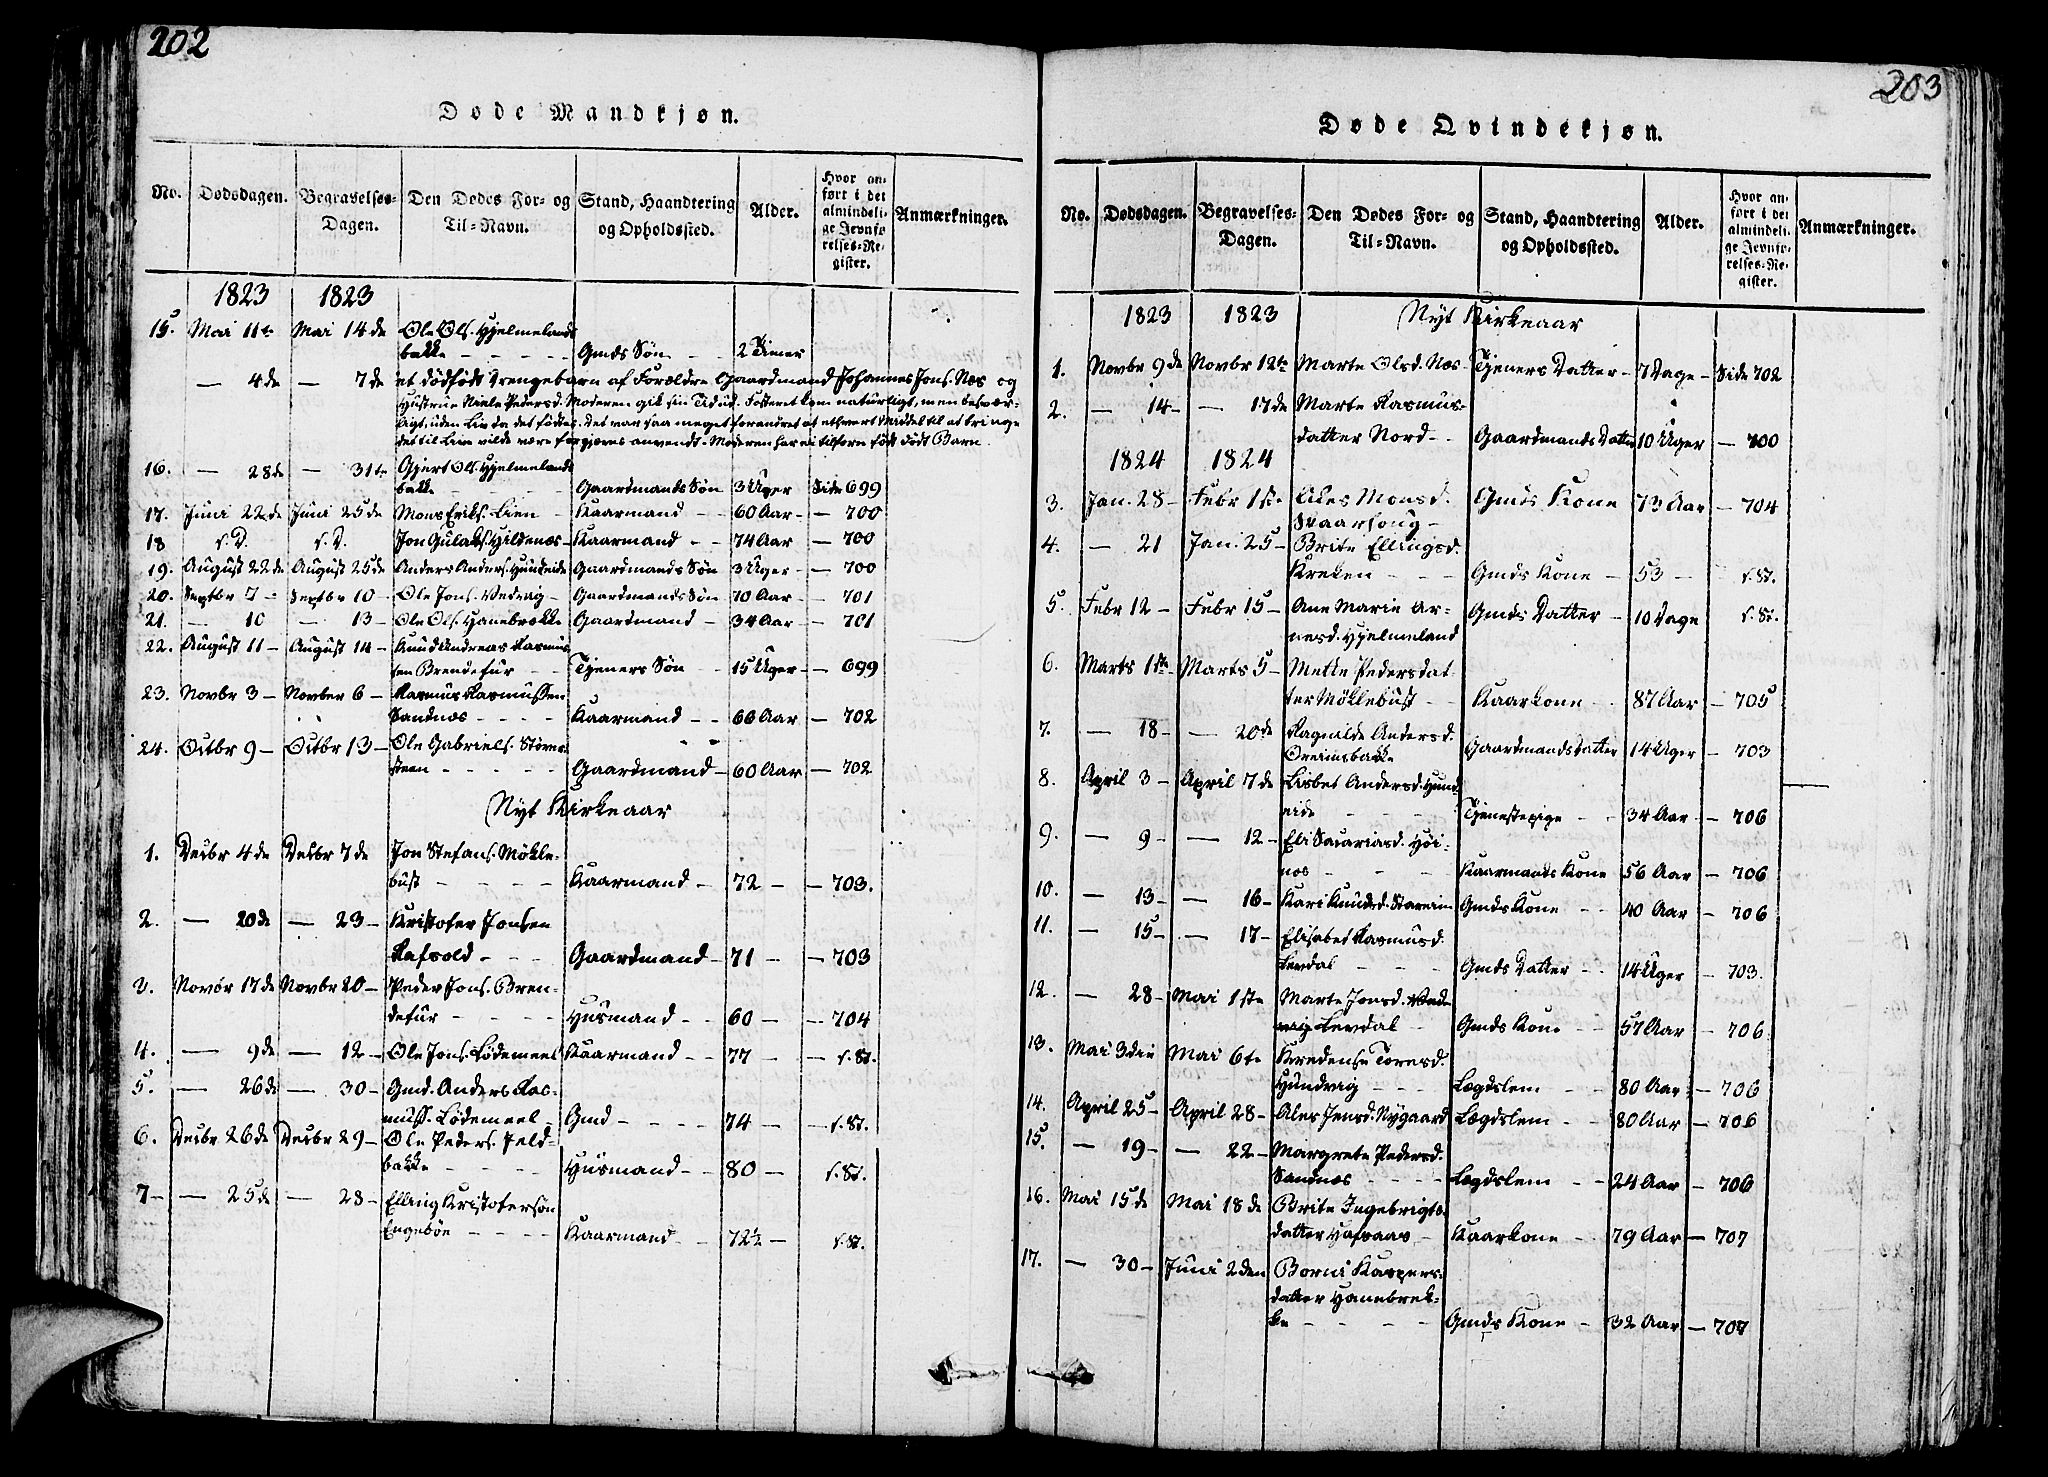 202
Døde Mandkjøn.
No. Dødsdagen. Begravelses-Dagen. Den Dødes For- og Til-Navn. Stand, Haandtering og Opholdssted. Alder. Hvor anført i det almindelige Jevnførelses-Register. Anmærkninger.
1823 1823
15. Mai 11te Mai 14de Ole Ols. Hjelmelands
bakke - - - - Gmds Søn - - 2 Timer
— 4de — 7de et dødfødt Drengebarn af Forældre Gaardmand Johannes Jons. Næs og
Hustrue Niele Pedersd. Moderen gik sin Tid ud. Fosteret kom naturligt, men besvær-
ligt, uden Liv da det fødtes. Det var saa meget forandret at ethvert Middel til at bringe
det til Live vilde være forgjæves anvendt. Moderen har ei tilforn født dødt Barn.
16. — 28de — 31te Gjert Ols. Hjelmelands
bakke - - - Gaardmands Søn 3 Uger Side 699
17. Juni 22de Juni 25de Mons Eriks. Lien - Kaarmand - - 60 Aar - — 700
18 s. D. s. D. Jon Gulaks. Hildenæs - Kaarmand - - 74 Aar - — 700
19. August 22de August 25de Anders Anders. Hundeide Gaardmands Søn 3 Uger - — 700
20. Septbr 7 - Septbr 10 - Ole Jons. Vedvig - Gaardmands Søn 10 Aar - — 701
21. — 10 — 13 - Ole Ols. Hanebrække Gaardmand - 34 Aar - — 701
22. August 11 - August 14 - Knud Andreas Rasmus
sen Brendefur - Tjeners Søn - - 15 Uger - — 699
23. Novbr 3 - Novber 6 - Rasmus Rasmussen
Sandnæs - - - - Kaarmand - - 66 Aar - — 702
24. Octbr 9 - Octbr 13 - Ole Gabriels. Størve
steen - - - - Gaardmand - 60 Aar - — 702
Nyt Kirkeaar
1. Decbr 4de Decbr 7de Jon Stefans. Mökle-
bust - - - - Kaarmand - 72 - — 703.
2. — 20de — 23 - Kristofer Jonsen
Rafvold - - - Gaardmand - 71 - — 703
3. Novbr 17de Novbr 20 - Peder Jons. Bren-
defur - - - - Husmand - - 60 - — 704
4. — 9de — 12 - Ole Jons. Lödemeel Kaarmand - - 77 - — s. St.
5 — 26de — 30 - Gmd. Anders Ras-
muss. Lödemeel - Gmd - - - - 74 - — s. St.
6. Decbr 26de Decbr 29 - Ole Peders. Jeld-
bakke - - - - Husmand - - 80 - s. St.
7 - — 25de — 28 - Elling Kristofersøn
Engebøe - - - - Kaarmand - - 72½ - s. St.
203
Døde Qvindekjøn.
No. Dødsdagen. Begravelses-Dagen. Den Dødes For- og Til-Navn. Stand, Haandtering og Opholdssted. Alder. Hvor anført i det almindelige Jevnførelses-Register. Anmærkninger.
1823 1823 Nyt Kirkeaar
1. Novbr 9de Novbr 12te Marte Olsd. Næs - Tjeners Datter - 7 Dage - Side 702
2. — 14 - — 17de Marte Rasmus-
datter Nord - - Gaardmands Datter 10 Uger — 700
1824 1824
3. Jan. 28 - Febr 1ste Ales Monsd. Gmds Kone 73 Aar — 704
Skaarhoug -
4. — 21 Jan. 25 - Brite Ellingsd.
Kreken - - - Gmds Kone - 53 - s. St.
5. Febr 12 - Febr 15 - Ane Marie Ar- Gmds Datter - 10 Dage s. St.
nesd. Hjelmeland
6. Marts 1ste Marts 5 - Mette Pedersdat
ter Möklebust - - Kaarkone - - 87 Aar - — 705
7. — 18 - — 20de Ragnilde Andersd.
Oreimsbakke Gaardmands Datter 14 Uger — 703
8. April 3 - April 7de Lisbet Andersd. Hund
eide - - - - Tjenestepige - - 34 Aar - — 706
9. — 9 - — 12 - Eli Sacariasd. Höi-
næs - - - Kaarmands Kone 56 Aar — 706
10. — 13 - — 16 - Kari Knudsd. Stareim Gmds Kone - - 40 Aar — 706
11. — 15 - — 17 - Elisabet Rasmusd.
Levdal - - - Gmds Datter - - 14 Uger — 703.
12. — 28 - Mai 1ste Marte Jonsd. Ved
vig Levdal - Gmds Kone - - 57 Aar — 706
13. Mai 3die Mai 6te Kredense Toresd.
Hundvig - - - Lægdslem - - 80 Aar - 706
14. April 25 - April 28 - Ales Jensd. Nygaard Lægdslem - - 80 Aar — 706
15. — 19 - — 22 - Margrete Pedersd.
Sandnæs - - - - Lægdslem - - 24 Aar — 706
16. Mai 15de Mai 18de Brite Ingebrigts-
datter Hafsaas - Kaarkone - 79 Aar — 707
17. — 30 - Juni 2den Borni Kaspers-
datter Hanebrek-
ke - - - - Gmds Kone - 32 Aar — 707